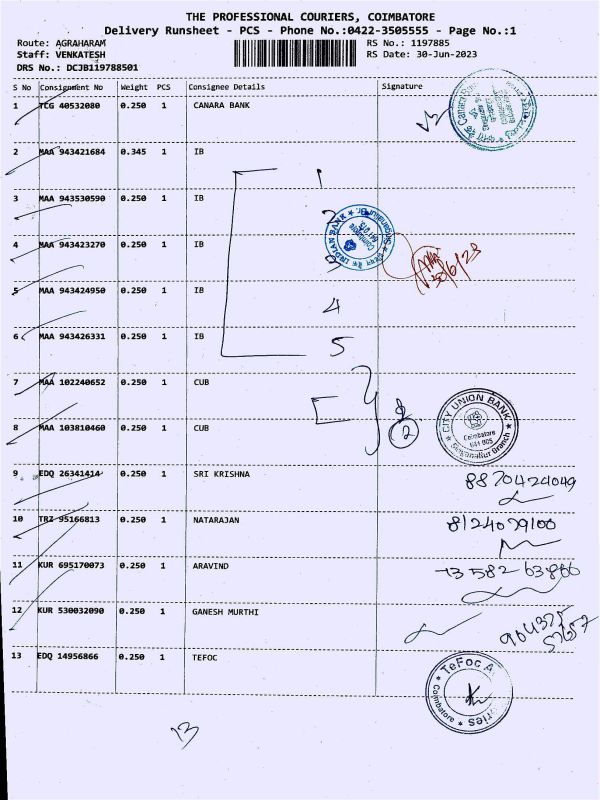 THE PROFESSIONAL COURIERS, COIMBATORE
Delivery Runsheet - PCS - Phone No.:0422-3505555 - Page No.:1
Route: AGRAHARAM RS No.: 1197885
Staff: VENKATESH RS Date: 30-Jun-2023
DRS No.: DCJB119788501
S No Consignment No Weight PCS Consignee Details Signature
1 TCG 40532080 0.250 1 CANARA BANK
2 MAA 943421684 0.345 1 IB
1
3 MAA 943530590 0.250 1 IB
2
INDIAN BANK
4 MAA 943423270 0.250 1 IB
3
30/6/23
5 MAA 943424950 0.250 1 IB
4
6 MAA 943426331 0.250 1 IB
5
7 MAA 102240652 0.250 1 CUB
CITY UNION BANK
Coimbatore
641 005
Singanallur Branch
8 MAA 103810460 0.250 1 CUB
2
9 EDQ 26341414 0.250 1 SRI KRISHNA
8870424049
10 TRZ 95166813 0.250 1 NATARAJAN
8124079100
11 KUR 695170073 0.250 1 ARAVIND
12 KUR 530032090 0.250 1 GANESH MURTHI
13 EDQ 14956866 0.250 1 TEFOC
TeFoc
Coimbatore
13